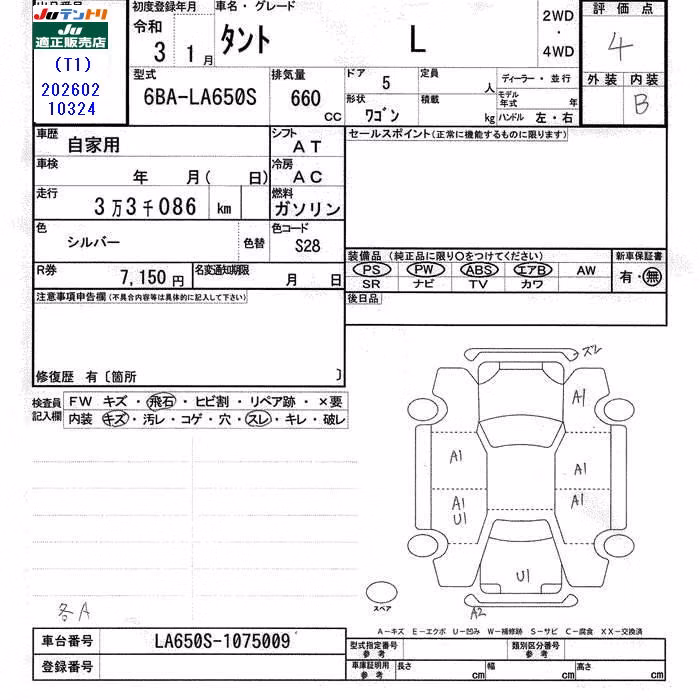 Juテントリ
Ju
適正販売店
(T1)
202602
10324
初度登録年月
令和
3 1月
車名・グレード
タント L
2WD
・
4WD
評価点
4
外装 内装
B
型式
6BA-LA650S
排気量
660
CC
ドア 5
形状
ワゴン
定員
人
積載
kg
ディーラー・並行
モデル
年式 年
ハンドル 左・右
車歴
自家用
シフト
AT
車検
年 月( 日)
冷房
AC
走行
3万3千086 km
燃料
ガソリン
色
シルバー
色替
色コード
S28
R券
7,150円
名変通知期限
月 日
セールスポイント(正常に機能するものに限ります)
装備品 (純正品に限り○をつけてください)
PS PW ABS エアB AW
SR ナビ TV カワ
新車保証書
有・無
後日品
注意事項申告欄(不具合内容等は具体的に記入して下さい)
修復歴 有〔箇所 〕
検査員
記入欄
FW キズ・飛石・ヒビ割・リペア跡・×要
内装 キズ・汚レ・コゲ・穴・スレ・キレ・破レ
ズレ
A1
A1
A1
A1
U1
A1
U1
A2
スペア
各A
A-キズ E-エクボ U-凹み W-補修跡 S-サビ C-腐食 XX-交換済
車台番号
LA650S-1075009
登録番号
型式指定番号
参考
類別区分番号
参考
車庫証明用
参考
長さ cm
幅 cm
高さ cm